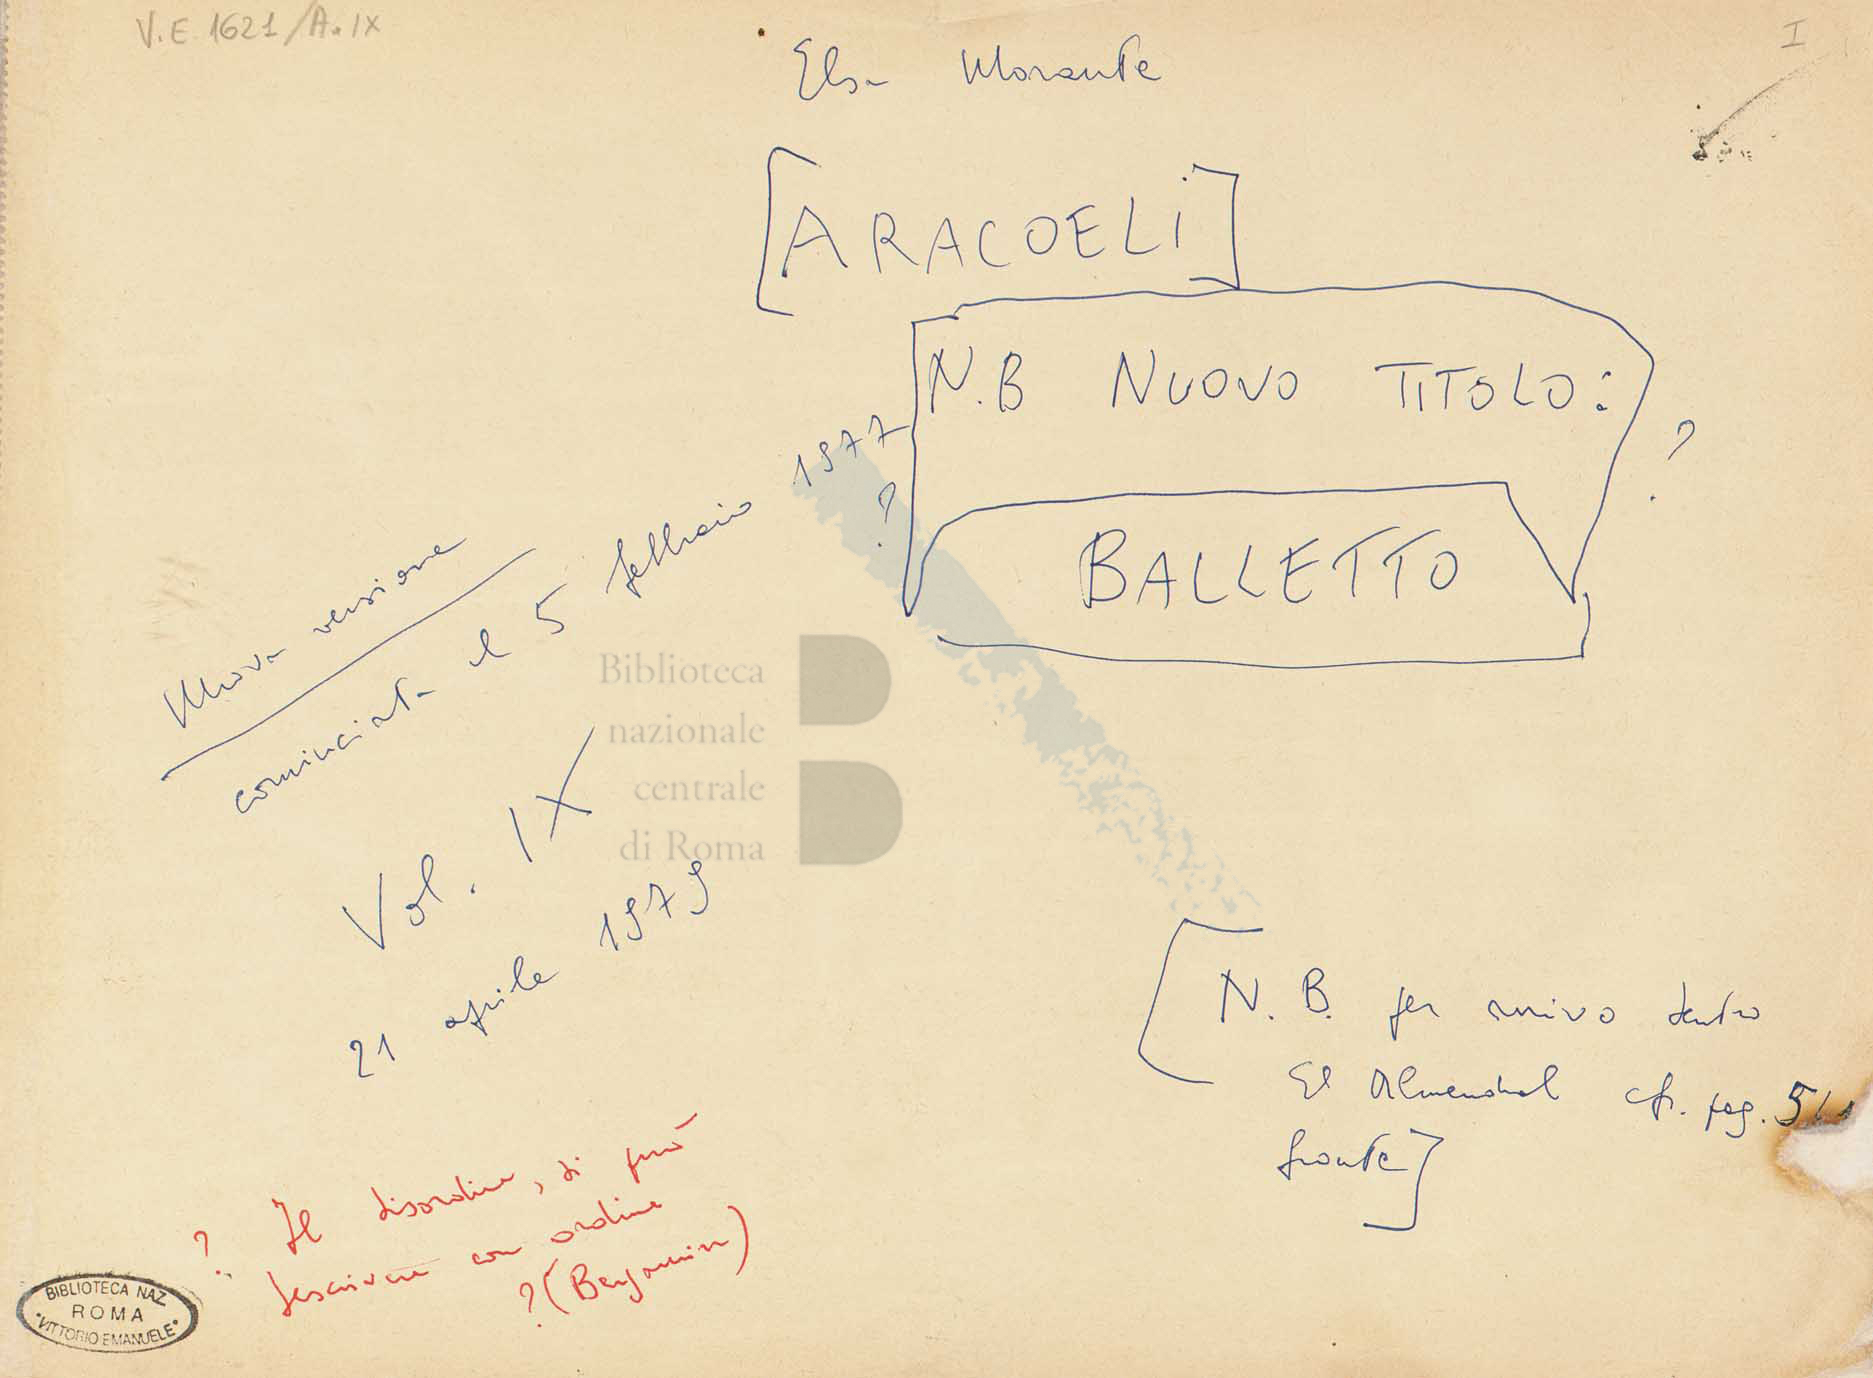 V.E. 1621/A.IX
I
Elsa Morante
[ARACOELI]
N.B NUOVO TITOLO:
? BALLETTO ?
Nuova versione
cominciata il 5 febbraio 1977
Vol. IX
21 aprile 1979
[N.B. per arrivo dentro
El Almendral cfr. pag. 5
fronte]
? Il disordine, si può
descrivere con ordine
? (Benjamin)
Biblioteca
nazionale
centrale
di Roma
BIBLIOTECA NAZ.
ROMA
"VITTORIO EMANUELE"